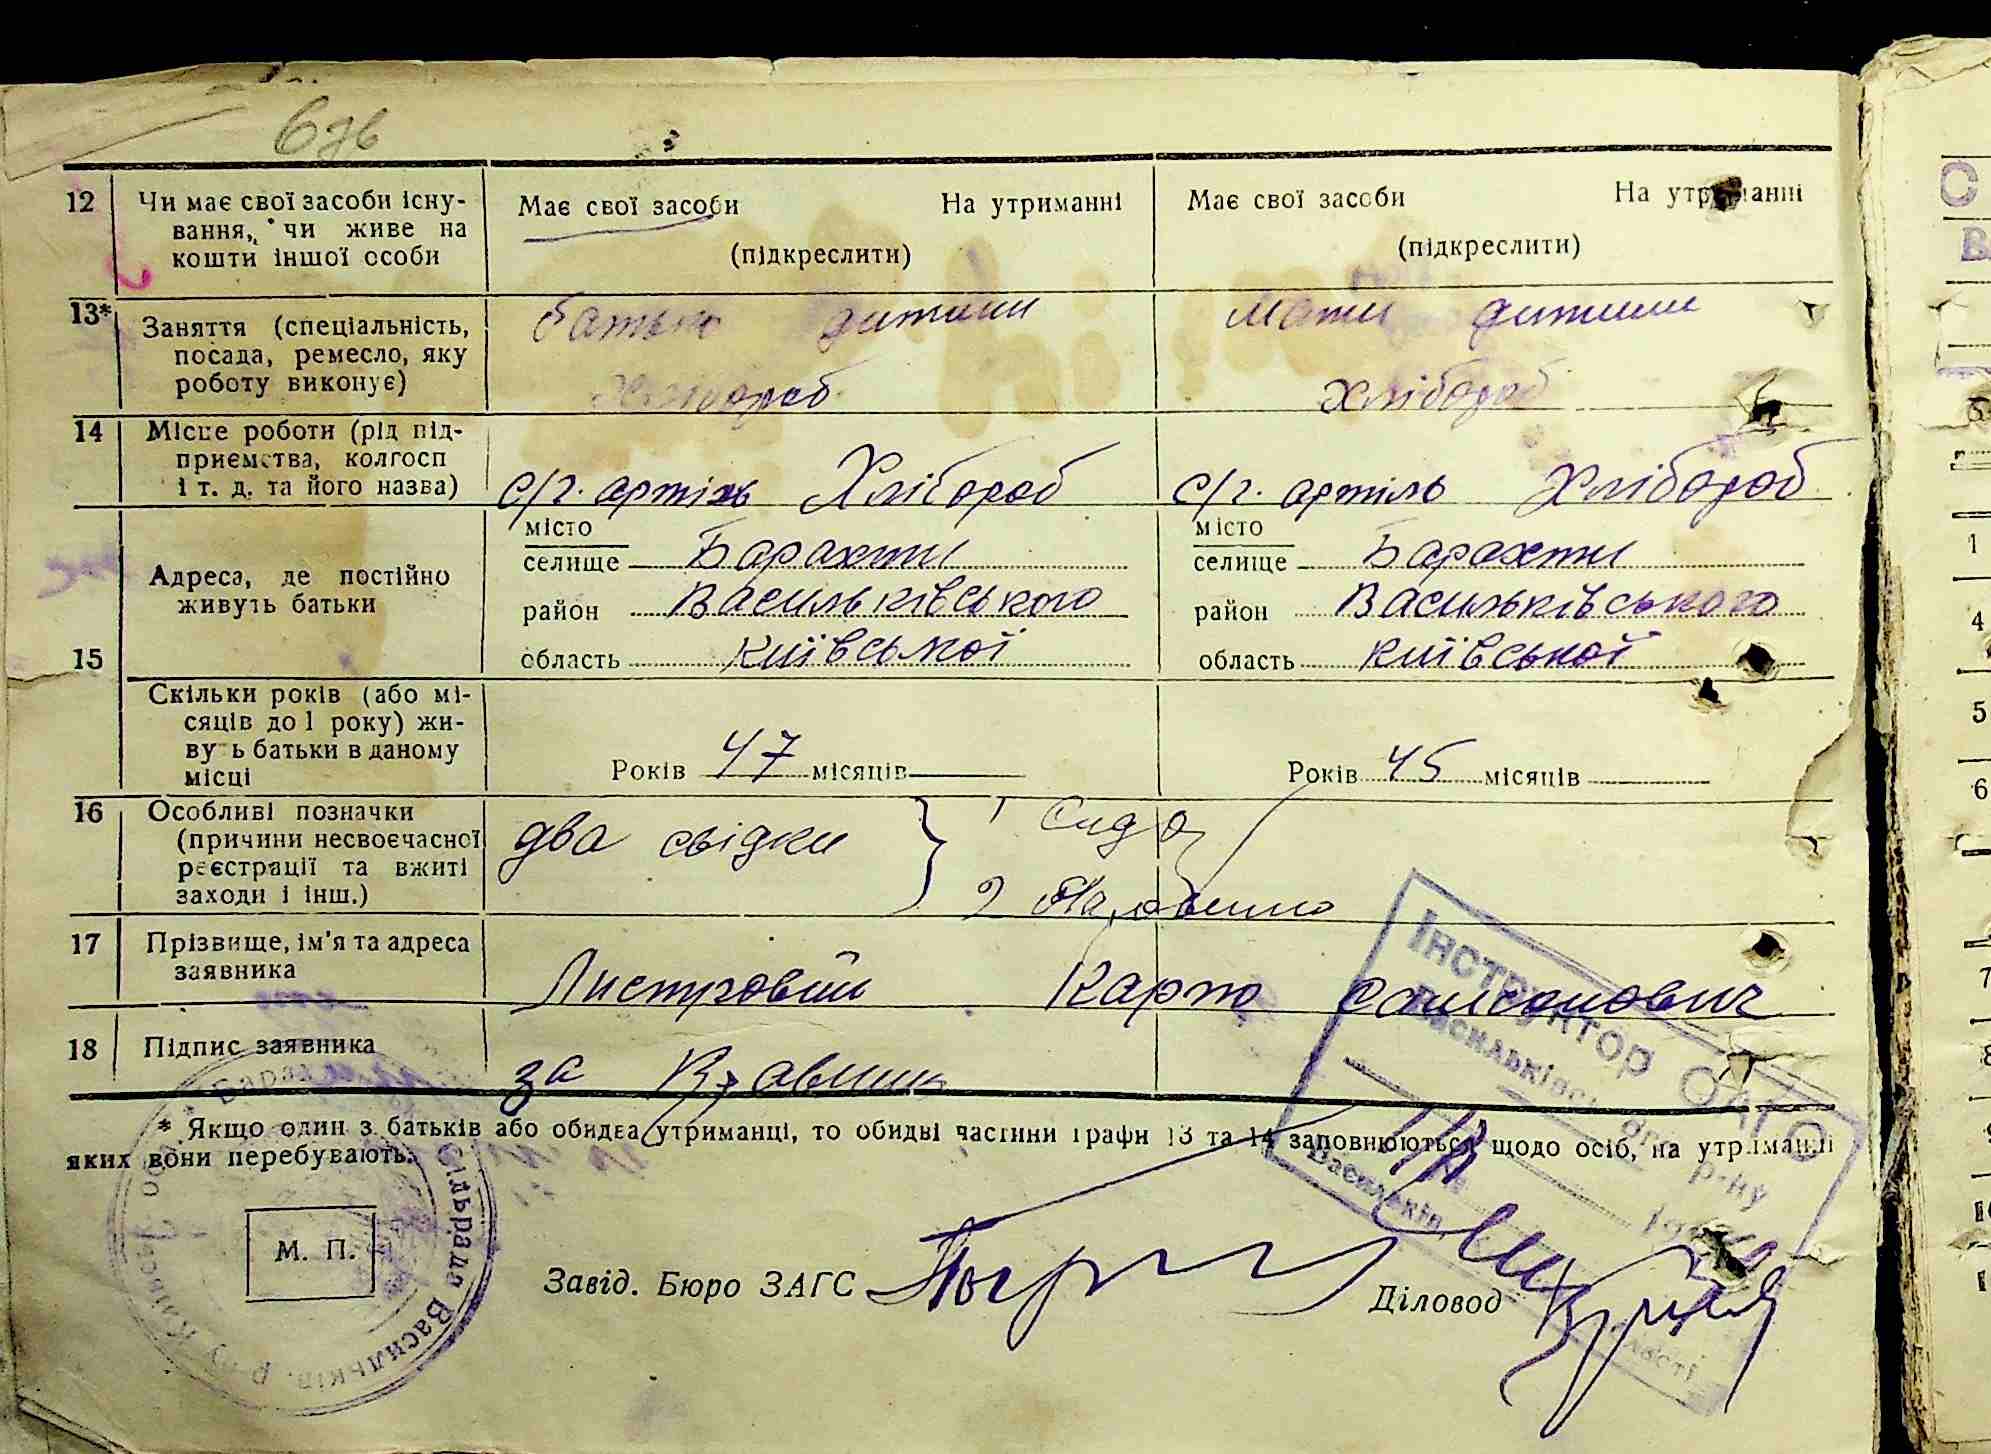 12
Чи має свої засоби існу-
вання, чи живе на
кошти іншої особи
Має свої засоби На утриманні
(підкреслити)
Має свої засоби На утриманні
(підкреслити)
13*
Заняття (спеціальність,
посада, ремесло, яку
роботу виконує)
батько дитини
Хлібороб
мати дитини
хлібороб
14
Місце роботи (рід під-
приємства, колгосп
і т. д. та його назва)
с/г. артіль Хлібороб
с/г. артіль Хлібороб
15
Адреса, де постійно
живуть батьки
місто
селище Барахти
район Васильківського
область київської
місто
селище Барахти
район Васильківського
область київської
Скільки років (або мі-
сяців до 1 року) жи-
вуть батьки в даному
місці
Років 47 місяців
Років 45 місяців
16
Особливі позначки
(причини несвоєчасної
реєстрації та вжиті
заходи і інш.)
два свідки
1
2
17
Прізвище, ім'я та адреса
заявника
Листровий Карпо Самсонович
18
Підпис заявника
за
* Якщо один з батьків або обидва утриманці, то обидві частини графи 13 та 14 заповнюються щодо осіб, на утриманні
яких вони перебувають.
М. П.
Завід. Бюро ЗАГС
Діловод
Інструктор
Сільрада Васильків. р-ну Київськ